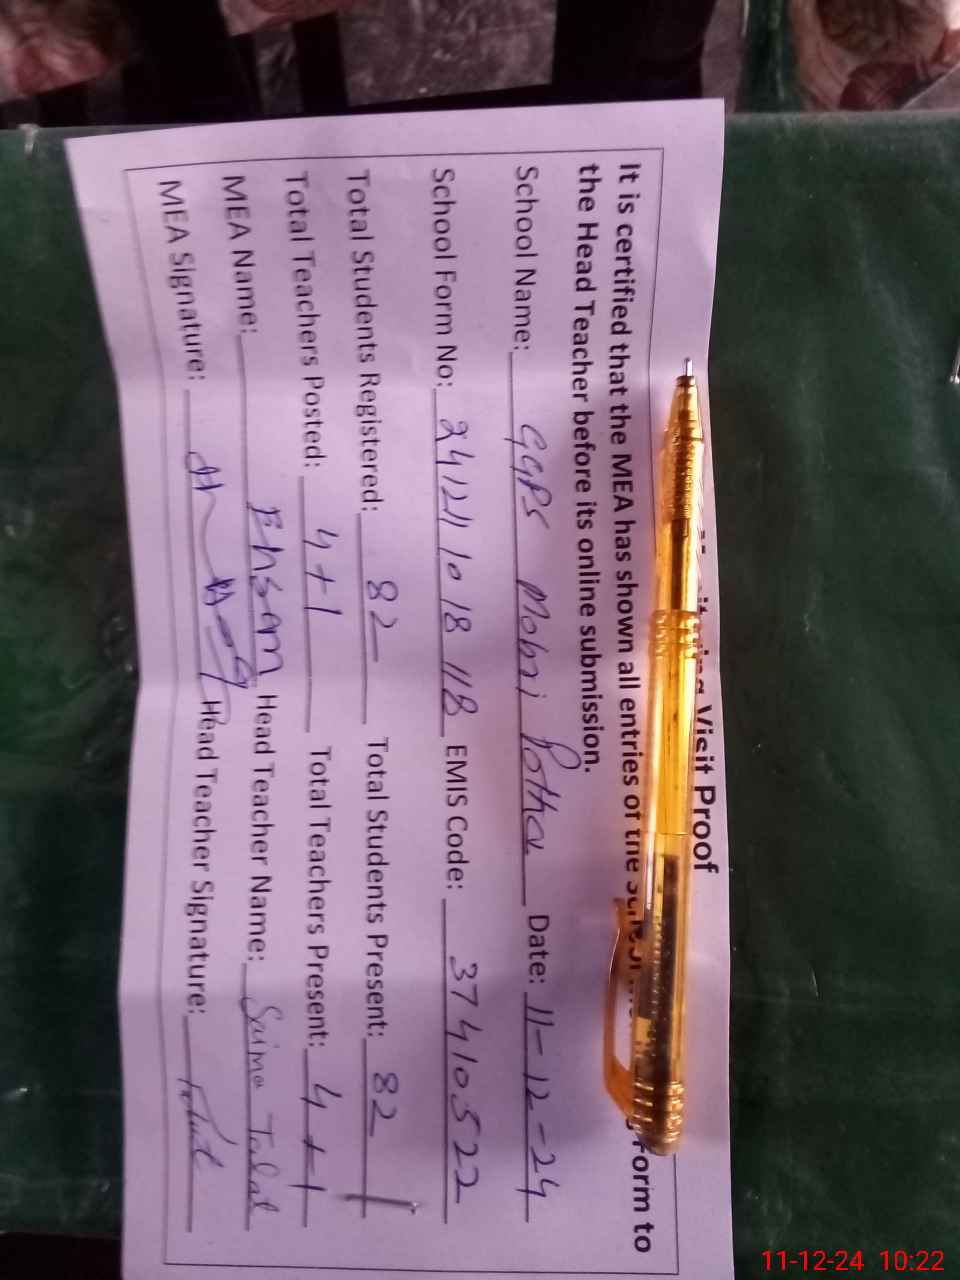 Visit Proof
It is certified that the MEA has shown all entries of the Form to
the Head Teacher before its online submission.
School Name: GGPS Mohri Date: 11-12-24
School Form No: EMIS Code: 37410522
Total Students Registered: 82 Total Students Present: 82
Total Teachers Posted: 4+1 Total Teachers Present: 4+1
MEA Name: Ehsam Head Teacher Name: Saima Talat
MEA Signature: Head Teacher Signature:
11-12-24 10:22